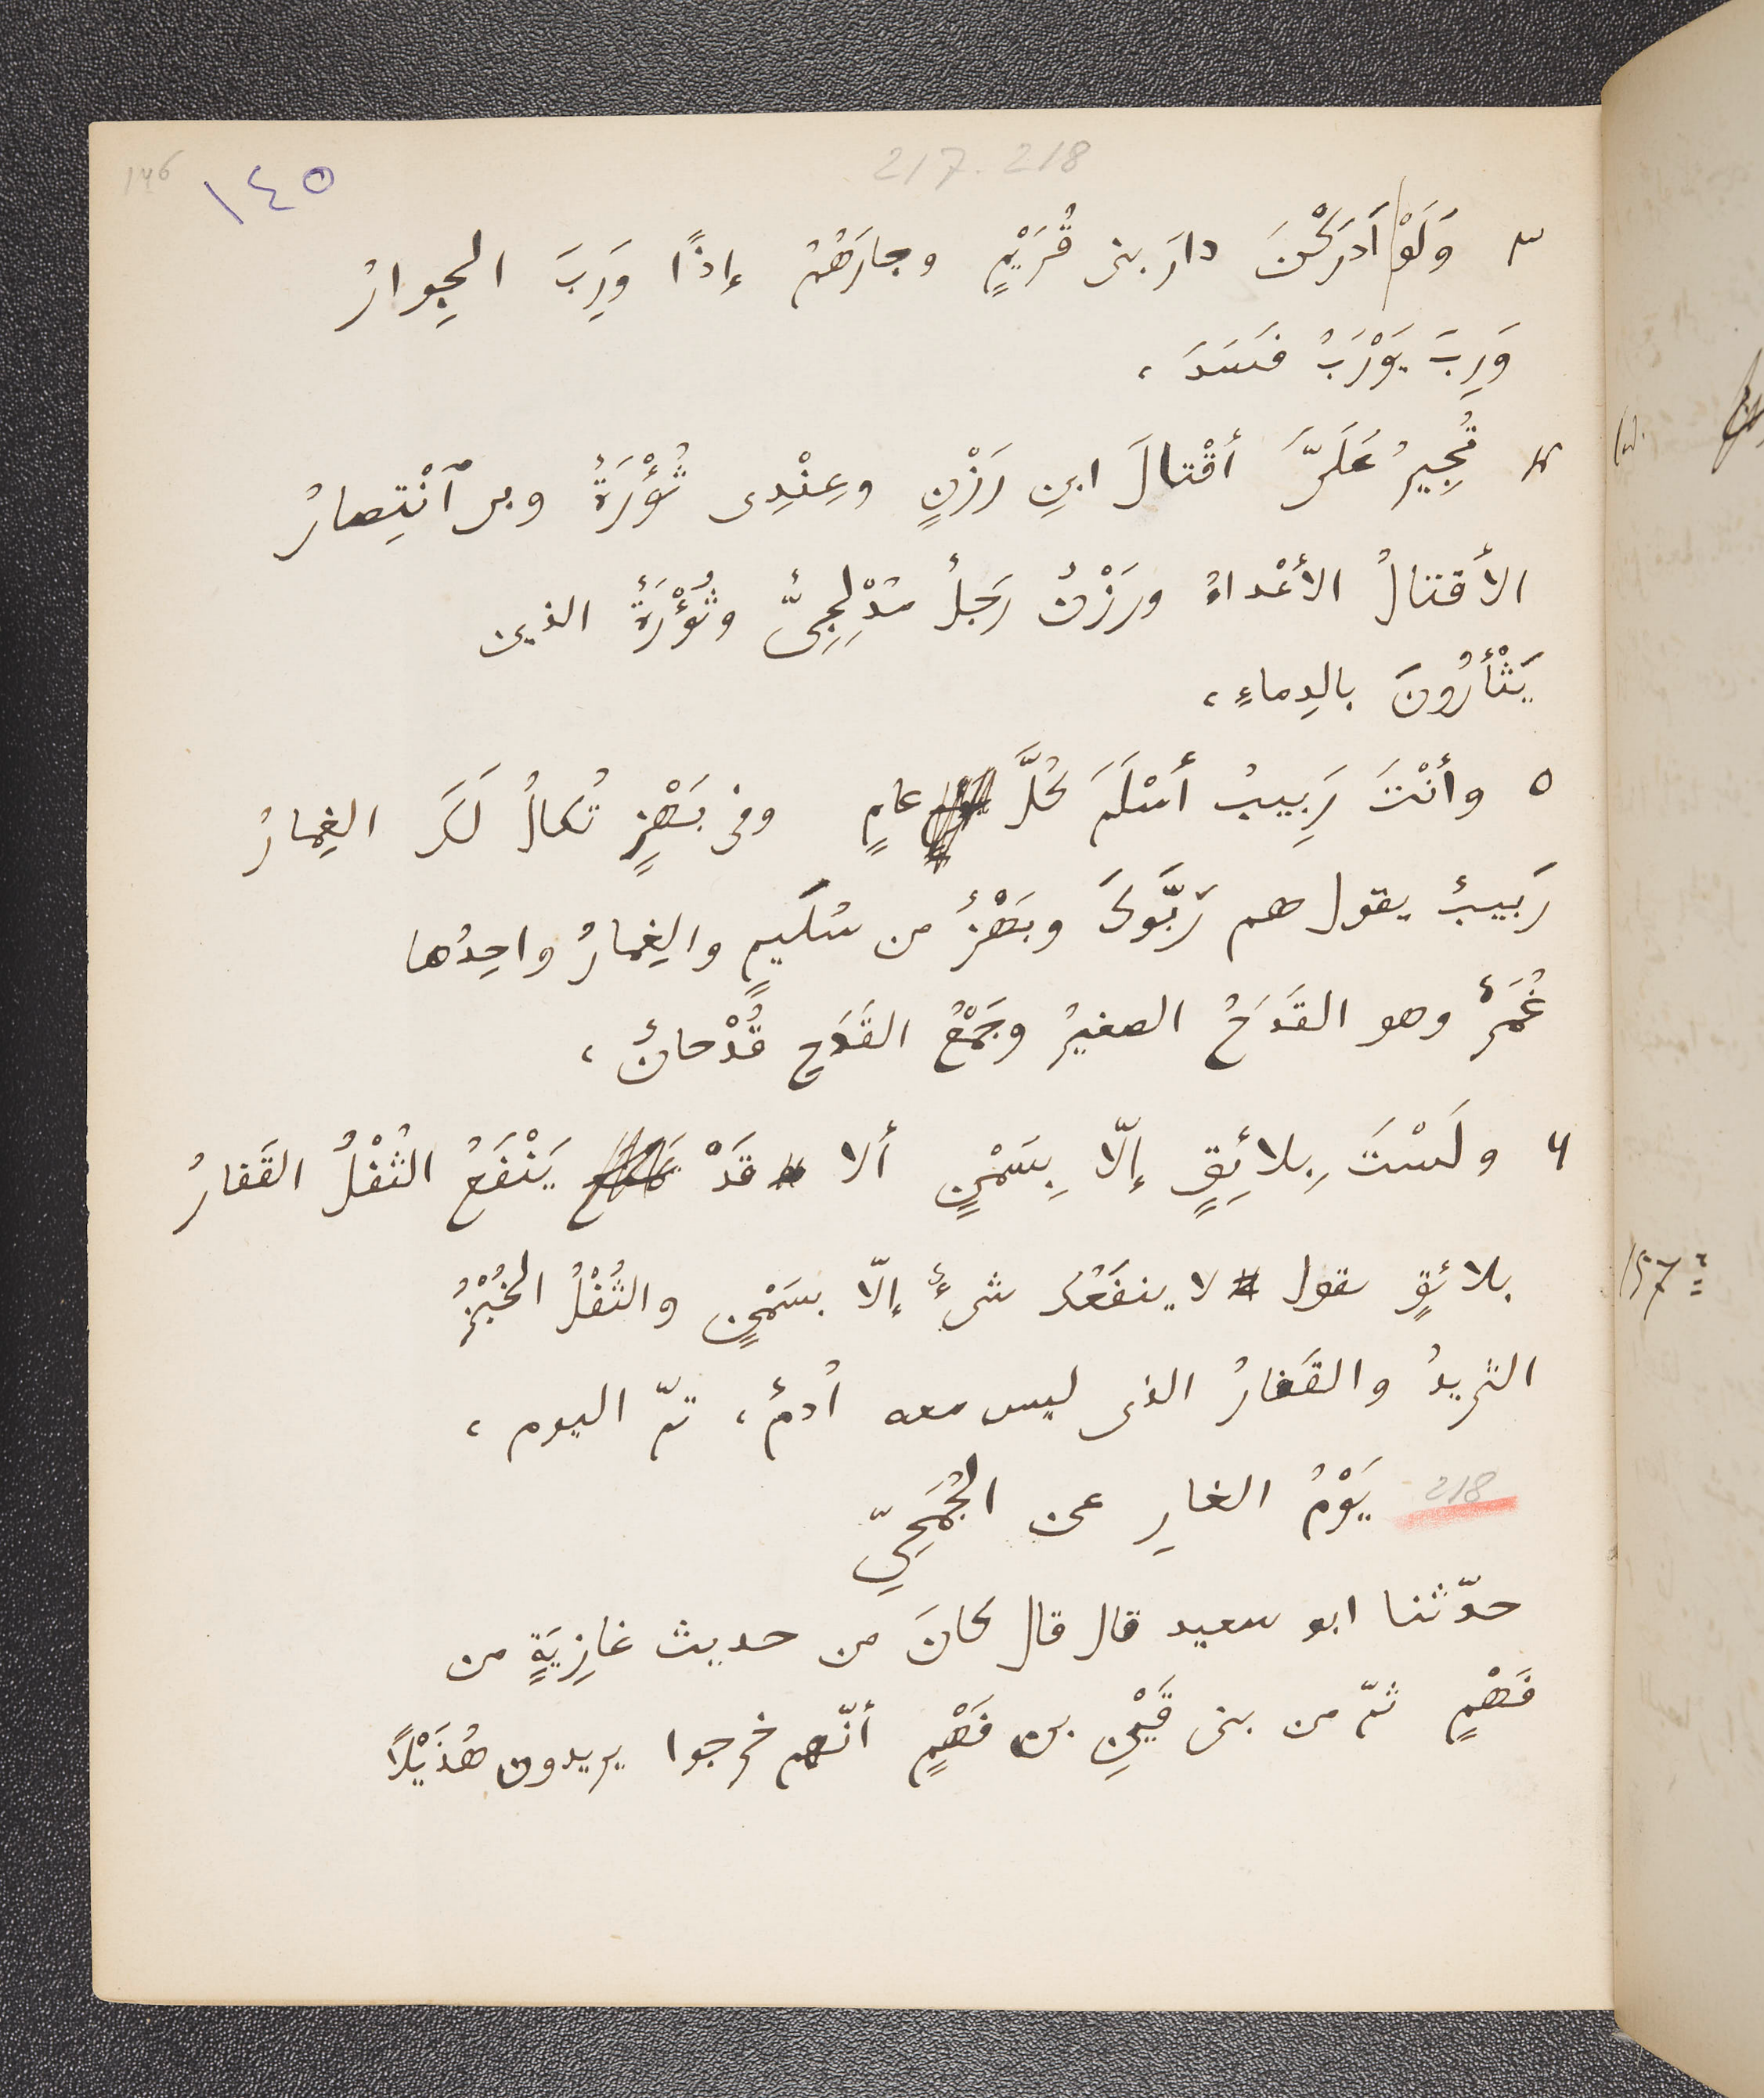 146
١٤٥
217. 218
٣ وَلَوْ أَدرَكْنَ دارَ بنى قُرَيْمٍ وجارَهُمُ إذًا وَرِبَ الجِوارُ
وَرِبَ يَوْرَبُ فَسَدَ ،
٤ تُجِيرُ عَلَىَّ أقْتالَ ابنِ رَزْنٍ وعِنْدِى ثُؤْرَةٌ وبى ٱنْتِصارُ
الأَقتالُ الأعْداءُ ورَزْنٌ رَجلٌ مُدْلِجِىٌّ وثُؤْرَةٌ الذين
يَثْأَرُونَ بالدِماءِ ،
٥ وأنْتَ رَبِيبُ أَسْلَمَ كُلَّ عامٍ وفى بَهْزٍ تُكالُ لَكَ الغِمارُ
رَبِيبٌ يقول هم رَبَّوكَ وبَهْزٌ من سُلَيمٍ والغِمارُ واحِدُها
غُمَرٌ وهو القَدَحُ الصغيرُ وجَمْعُ القَدَحِ قُدْحانٌ ،
٦ ولَسْتَ بِلائِقٍ إلّا بِسَمْنٍ ألا قَدْ يَنْفَعُ الثُفْلُ القَفارُ
بلائقٍ يقول لا ينفَعُك شىءٌ إلّا بسَمْنٍ والثُفْلُ الخُبْزُ
الثريدُ والقَفارُ الذى ليس معه أُدمٌ ، تمّ اليوم ،
218 يَوْمُ الغارِ عن الجُمَحِيّ
حدّثنا ابو سعيد قال قال كانَ من حديث غازِيَةٍ من
فَهْمٍ ثمّ من بنى قَيْنِ بن فَهْمٍ أنّهم خرجوا يريدون هُذَيْلًا
157